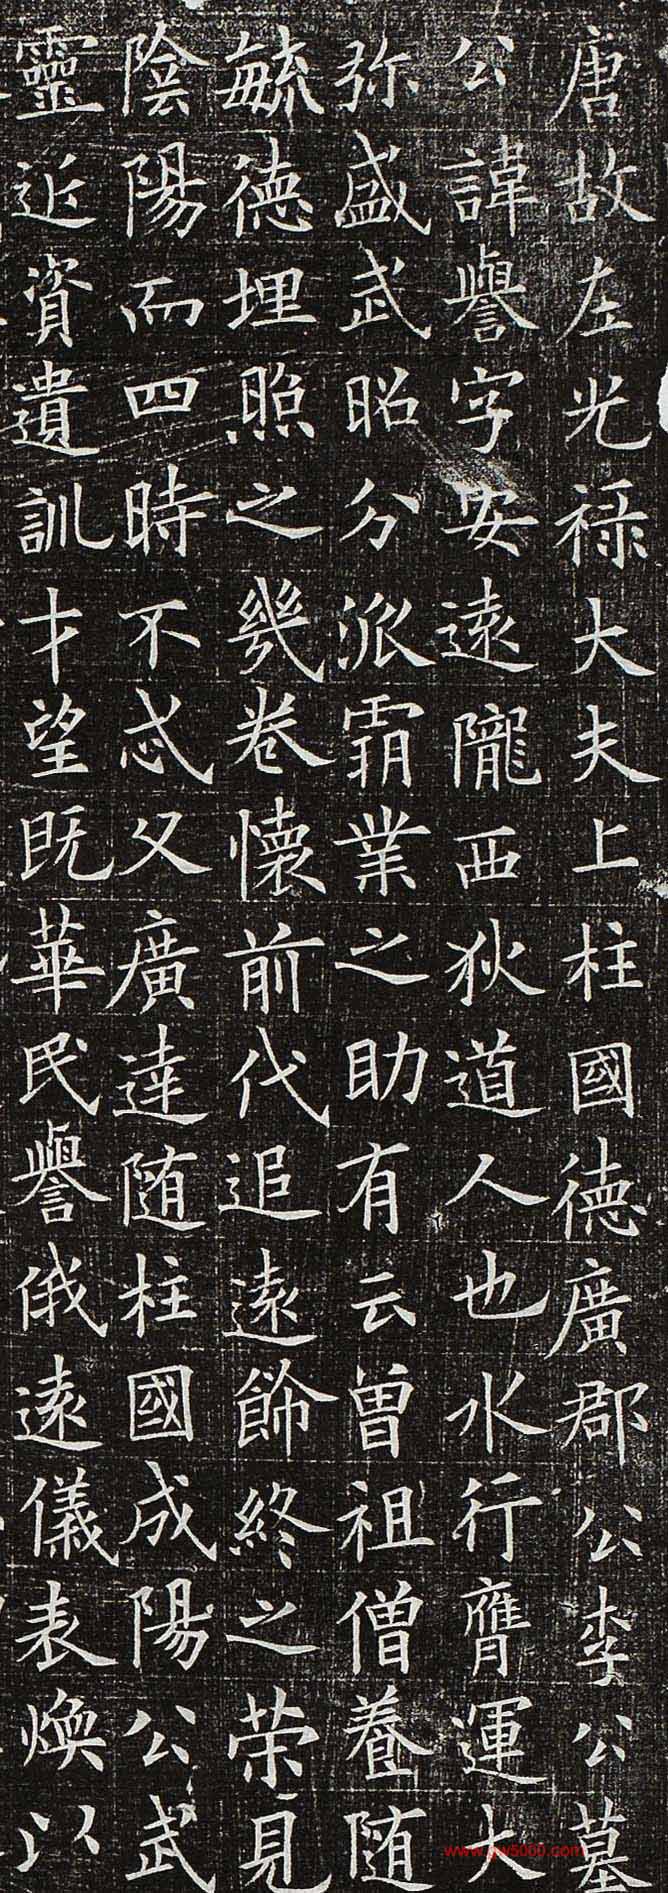 唐故左光禄大夫上柱國德廣郡公李公墓
公諱譽字安遠隴西狄道人也水行膺運大
弥盛武昭分派霸業之助有云曾祖僧養随
毓德埋照之幾卷懷前代追遠飾終之荣見
陰陽而四時不忒父廣達随柱國成陽公武
靈近資遺訓才望既華民譽俄遠儀表煥以
www.yw5000.com